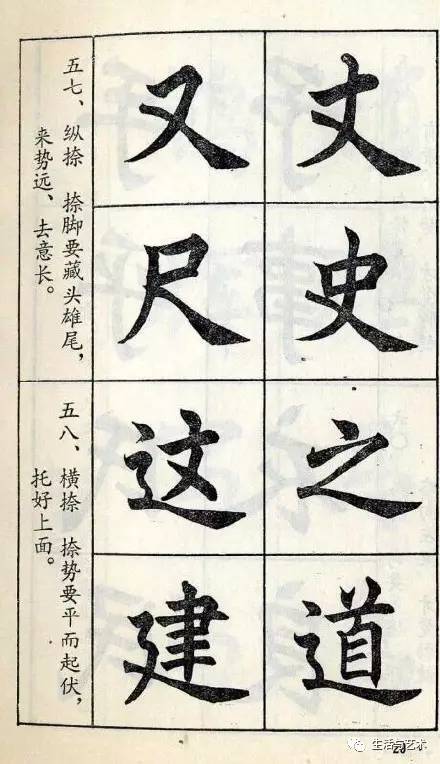 丈
史
之
道
又
尺
这
建
五七、纵捺 捺脚要藏头雄尾，
来势远、去意长。
五八、横捺 捺势要平而起伏，
托好上面。
生活与艺术